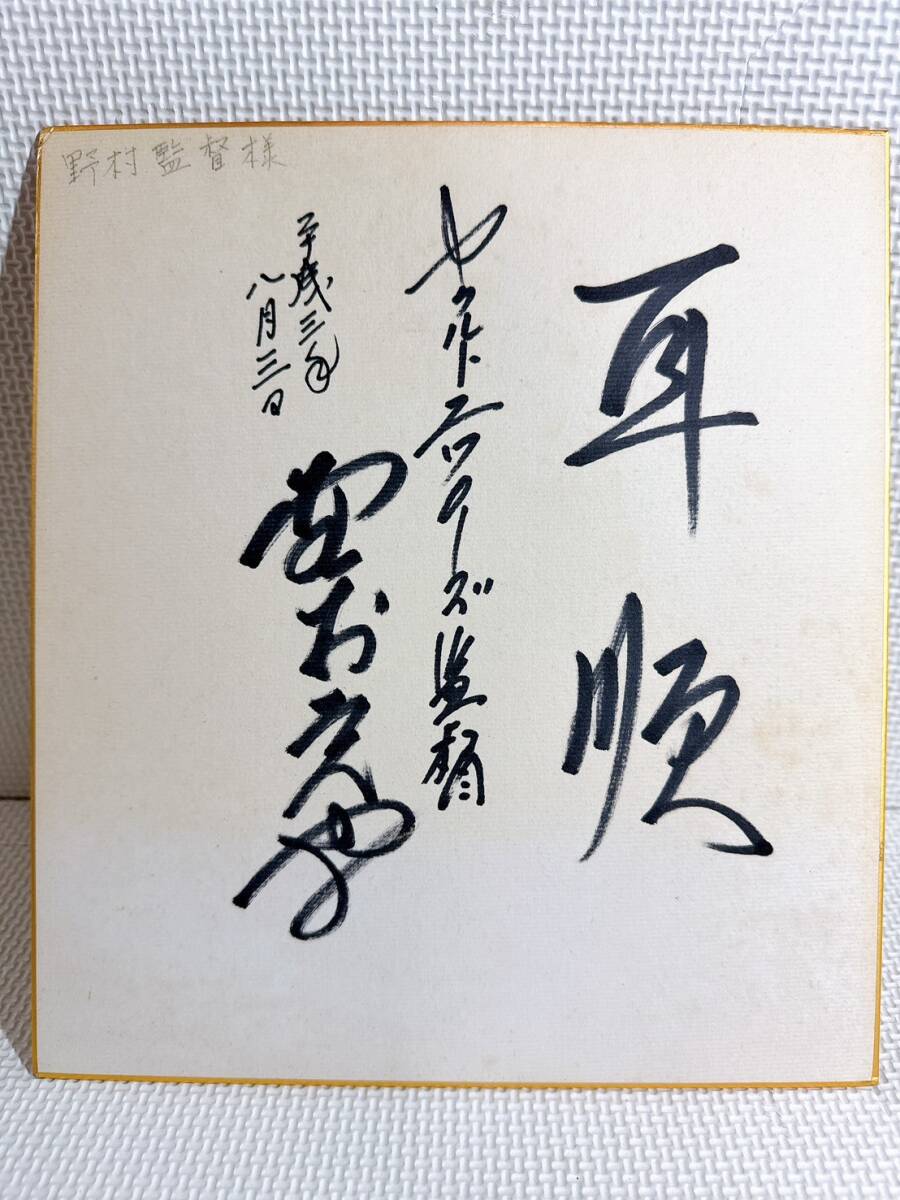 野村監督様
耳順
ヤクルトスワローズ監督
平成三年
八月三日
野村克也